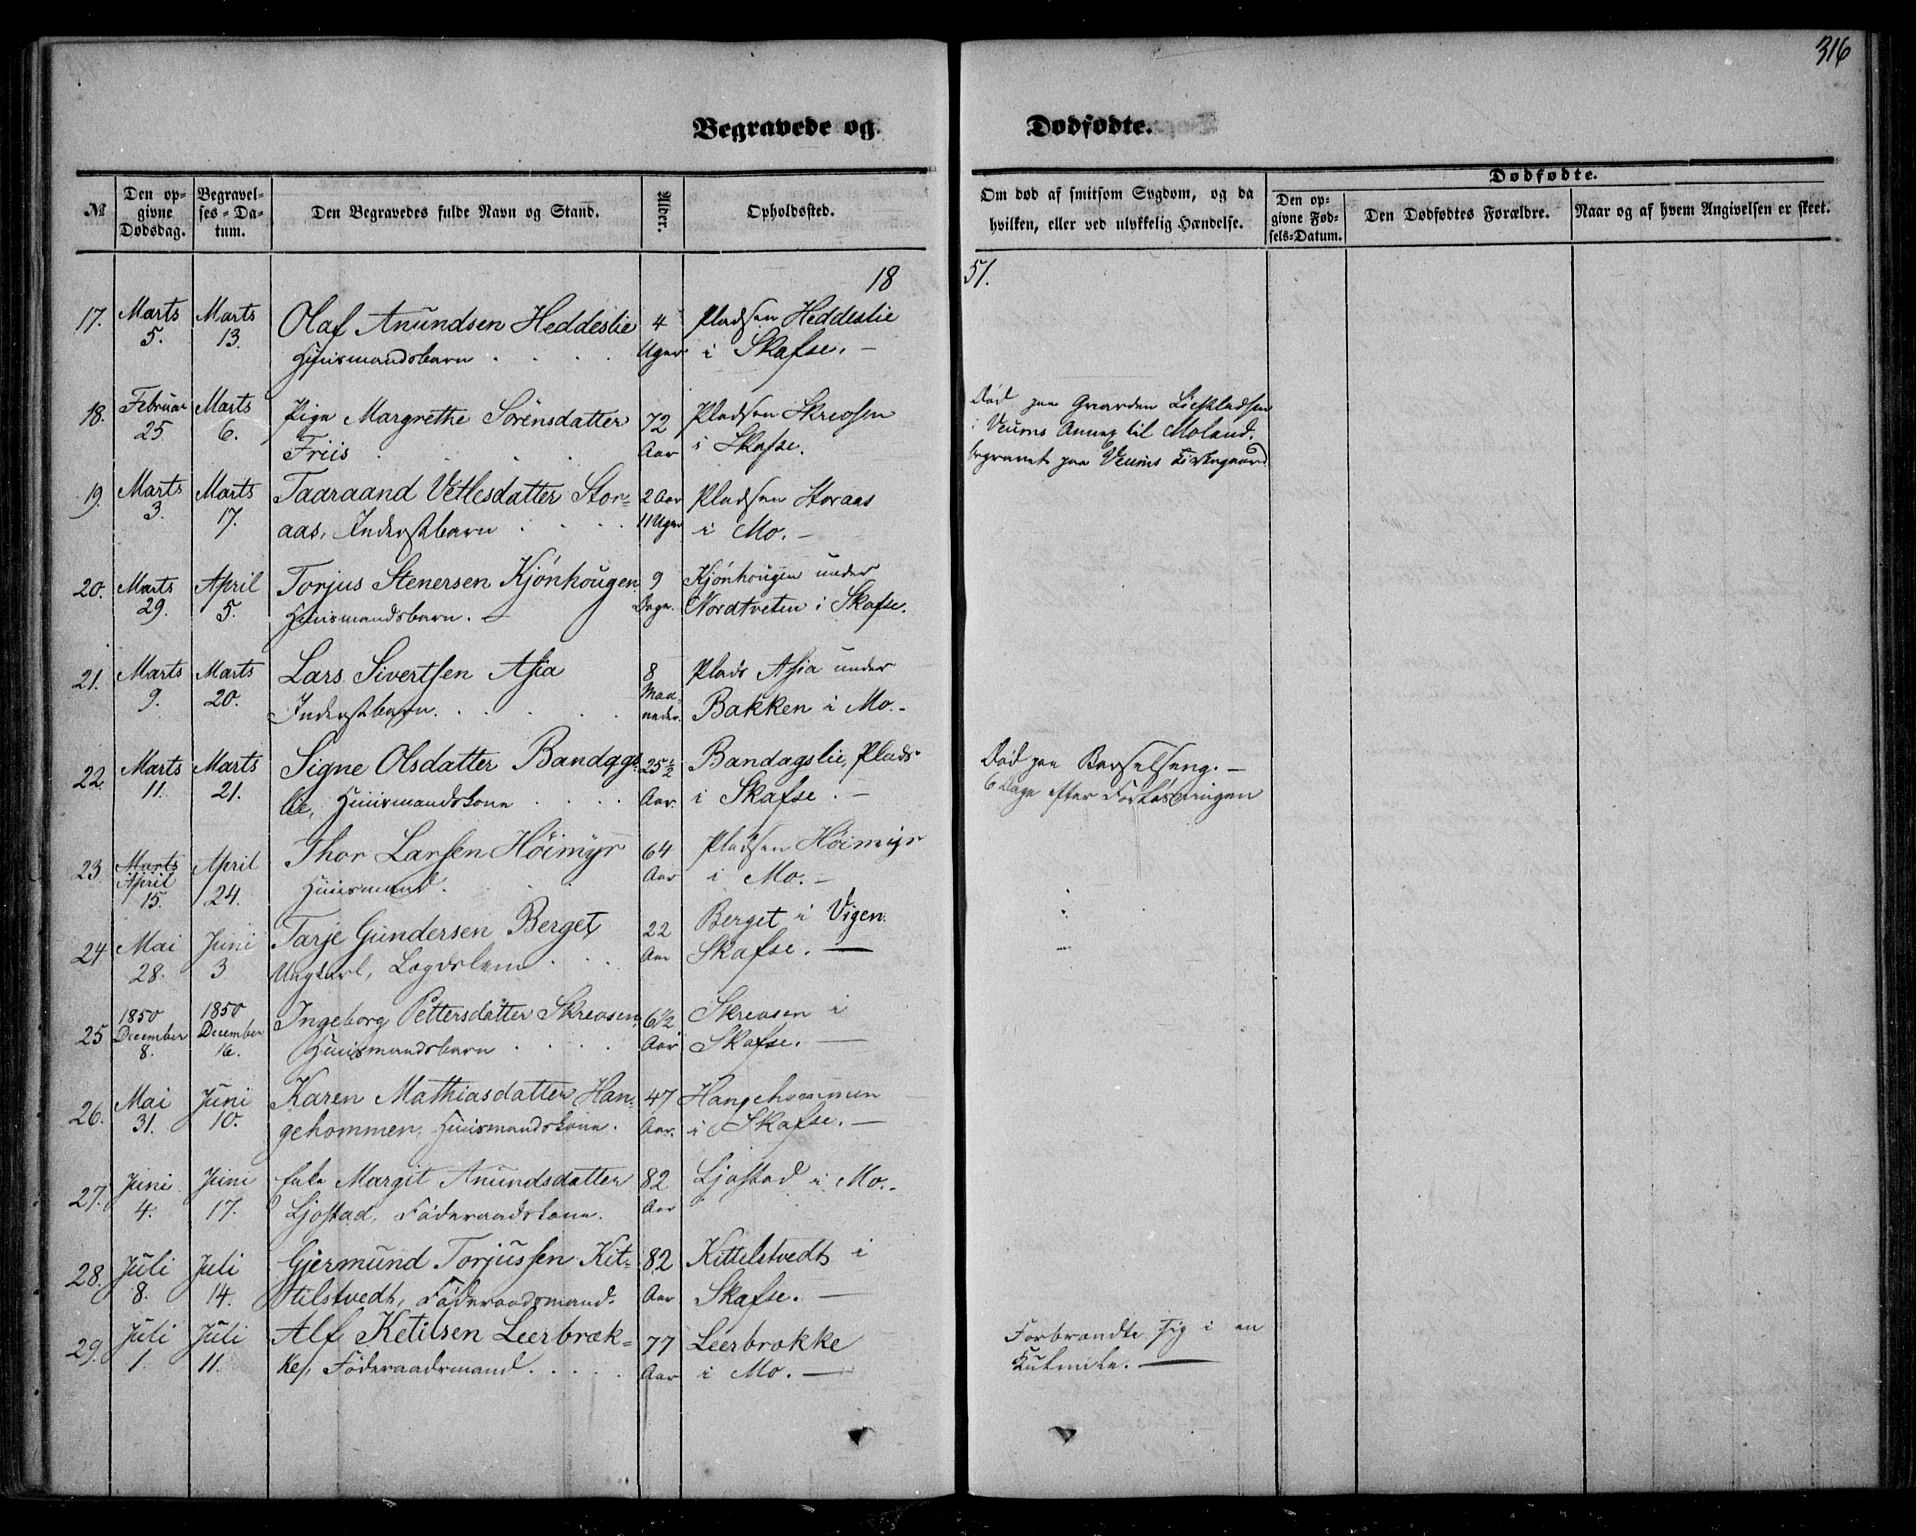 316
Begravede og Dødfødte.
№
Den opgivne Dødsdag.
Begravelses-Datum.
Den Begravedes fulde Navn og Stand.
Alder.
Opholdssted.
Om død af smitsom Sygdom, og da
hvilken, eller ved ulykkelig Hændelse.
Dødfødte.
Den opgivne Fødsels-Datum.
Den Dødfødtes Forældre.
Naar og af hvem Angivelsen er skeet.
18 51.
17. Marts 5. Marts 13. Olaf Anundsen Heddeslie 4 Pladsen Heddeslie
Huusmandsbarn Uger i Skafse.
18. Februar 25. Marts 6. Pige Margrethe Sörensdatter 72 Pladsen Skreosen Död paa Gaarden
Friis Aar i Skafse. i Veums Annex til Moland.
begravet paa Veums Kirkegaard
19. Marts 3. Marts 17. Taaraand Vetlesdatter Stor- 2 Aar Pladsen Storaas
aas, Inderstbarn 11 Uger i Mo.
20. Marts 29. April 5. Torjus Stenersen Kjönhougen 9 Kjönhougen under
Huusmandsbarn. Dage. Nordtveten i Skafse.
21. Marts 9. Marts 20. Lars Sivertsen Asia 8 Plads Asia under
Inderstbarn. Maaneder. Bakken i Mo.
22. Marts 11. Marts 21. Signe Olsdatter Bandags- 25½ Bandagslie, Plads Död paa Barselseng.
lie, Huusmandskone Aar. i Skafse. 6 Dage efter Forlösningen
23. Marts April 15. April 24. Thor Larsen Höimyr 64 Pladsen Höimyr
Huusmand. Aar i Mo.
24. Mai 28. Juni 3 Tarje Gundersen Berget 22 Berget i Vigen
Ungkarl, Lægdslem Aar Skafse.
25 1850 December 8. 1850 December 16. Ingeborg Pettersdatter Skreosen 6½ Skreosen i
Huusmandsbarn Aar Skafse.
26. Mai 31. Juni 10. Karen Mathiasdatter Han- 47 Hangehommen
gehommen, Huusmandskone. Aar. i Skafse.
27. Juni 4. Juni 17. Enke Margit Anundsdatter 82 Ljostad i Mo.
Ljostad, Föderaadskone. Aar
28. Juli 8. Juli 14. Gjermund Torjussen Kit- 82 Kittelstvedt i
telstvedt, Föderaadsmand. Aar Skafse.
29. Juli 1. Juli 11. Alf Ketilsen Leerbræk- 77 Leerbrække Forbrændte sig i en
ke, Föderaadsmand Aar i Mo. Kulmile.